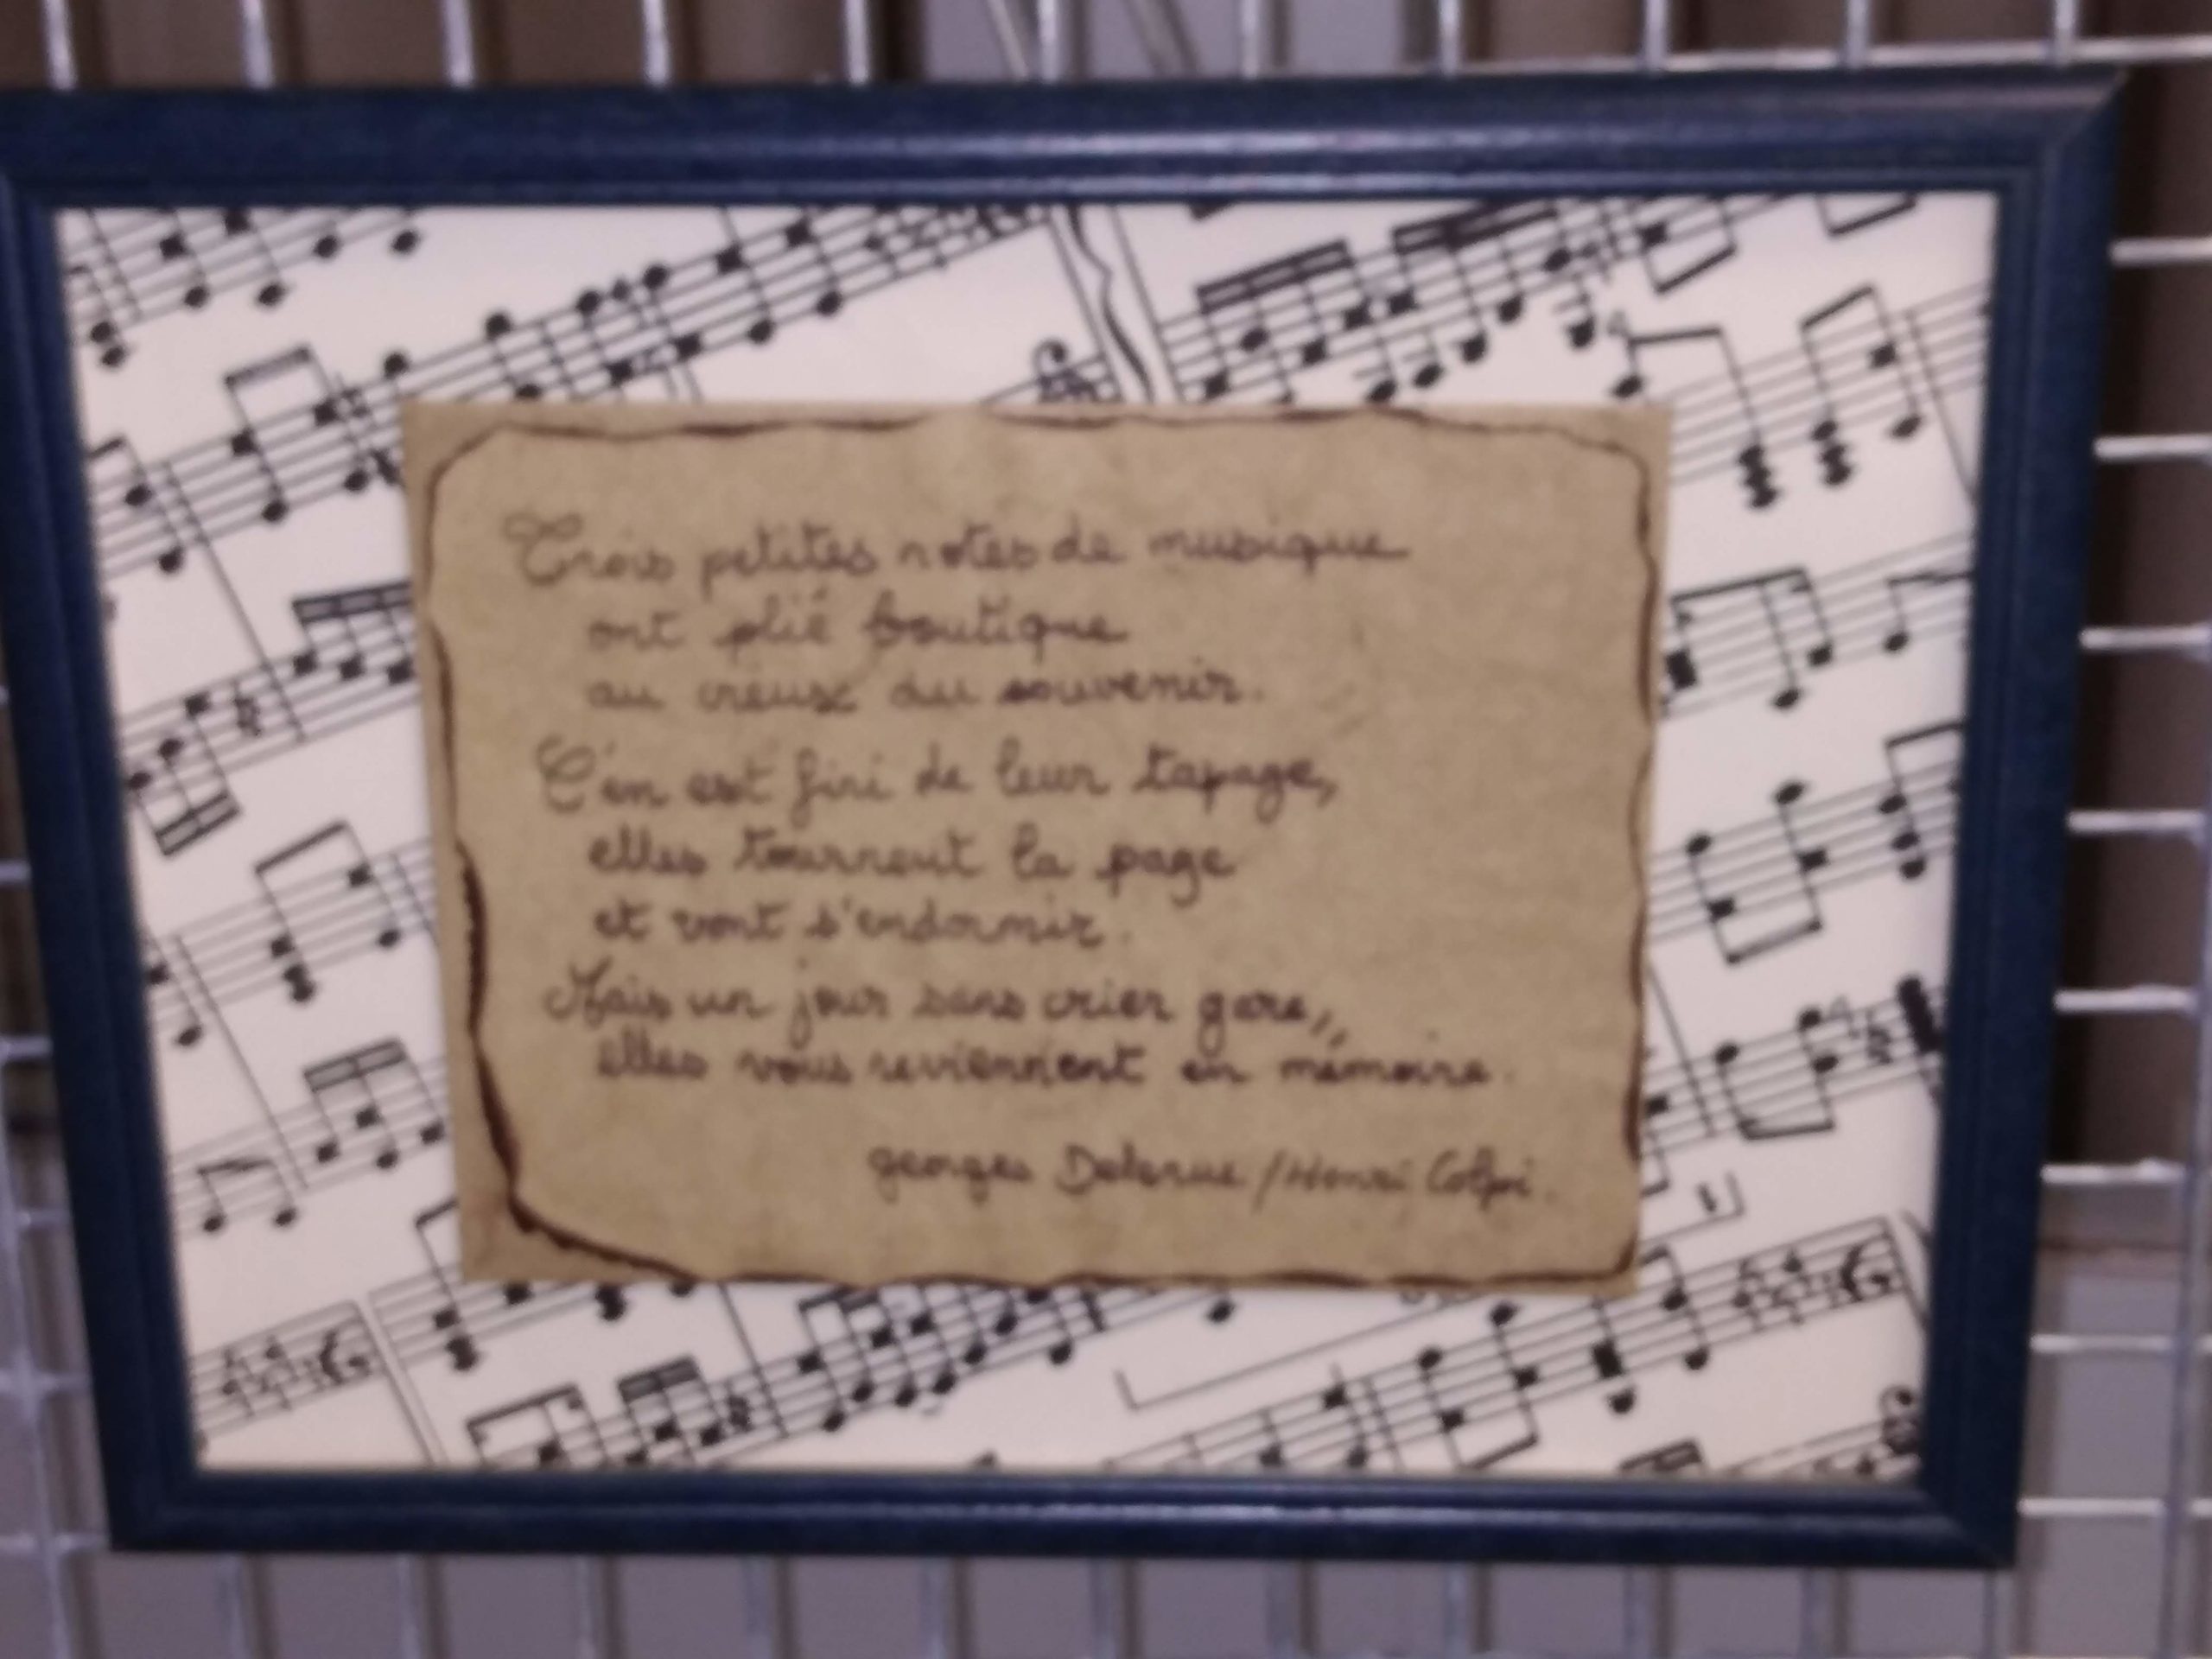 Trois petites notes de musique
ont plié boutique
au creux du souvenir.
C'en est fini de leur tapage,
elles tournent la page
et vont s'endormir.
Mais un jour sans crier gare,
elles vous reviennent en mémoire.
georges Delerue / Henri Colpi.